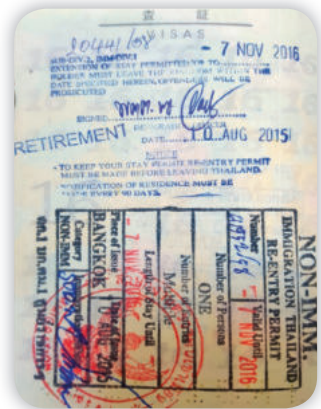 查 証
VISAS
- 7 NOV 2016
SUB-DIV.2, IMM.DIV.1
EXTENTION OF STAY PERMITTED UP TO
HOLDER MUST LEAVE THE KINGDOM WITHIN THE
DATE SPECIFIED HEREIN, OFFENDERS WILL BE
PROSECUTED
SIGNED
IMMIGRATION OFFICER
RETIREMENT
DATE 10 AUG 2015
NOTICE
- TO KEEP YOUR STAY PERMIT, RE-ENTRY PERMIT
MUST BE MADE BEFORE LEAVING THAILAND.
- NOTIFICATION OF RESIDENCE MUST BE
MADE EVERY 90 DAYS.
NON-IMM.
IMMIGRATION THAILAND
RE-ENTRY PERMIT
Number
Valid Until
- 7 NOV 2016
Number of Persons
ONE
Number of Entries
Multiple
Length of Stay Until
- 7 NOV 2016
Place of Issue
BANGKOK
Date of Issue
10 AUG 2015
Category
NON-IMM